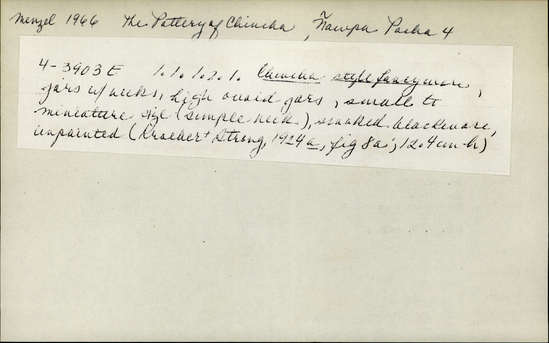 Menzel 1966 The Pottery of Chincha, Ñawpa Pacha 4
4-3903E 1.1.1.2.1. Chincha style fancy ware,
jars w/necks, high ovoid jars, small to
miniature size (simple neck), smoked blackware,
unpainted (Kroeber + Strong, 1924a, fig 8a; 12.4cm-h)